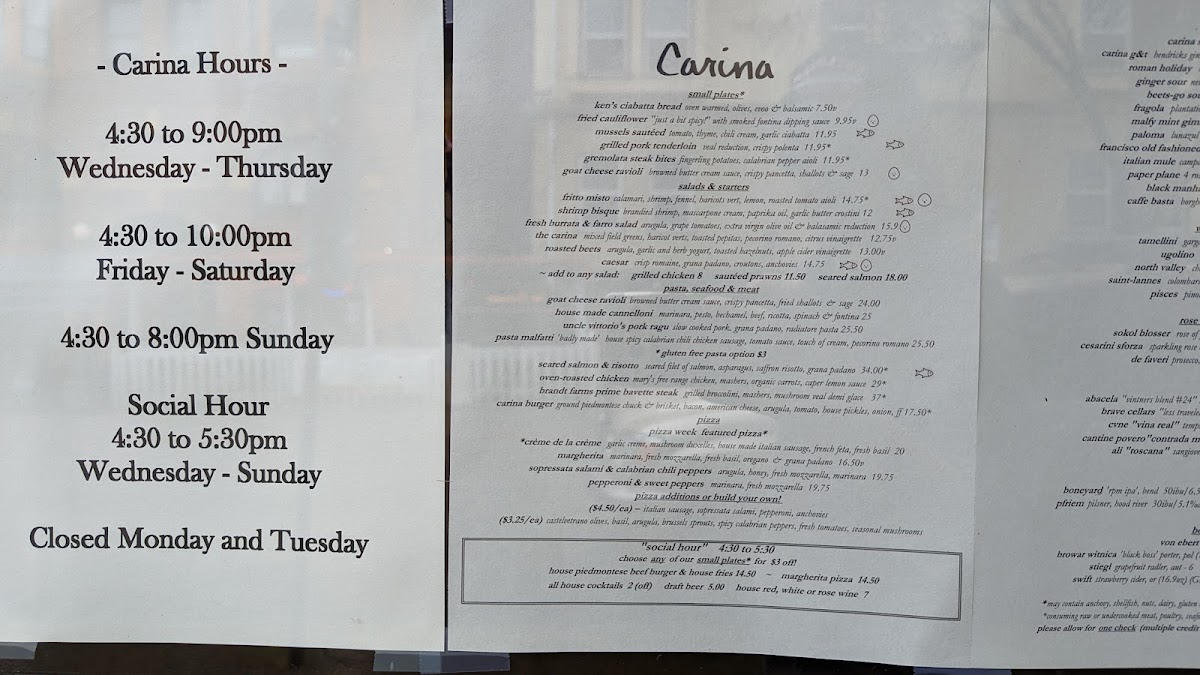 - Carina Hours -
4:30 to 9:00pm
Wednesday - Thursday
4:30 to 10:00pm
Friday - Saturday
4:30 to 8:00pm Sunday
Social Hour
4:30 to 5:30pm
Wednesday - Sunday
Closed Monday and Tuesday
Carina
small plates*
ken's ciabatta bread oven warmed, olives, evoo & balsamic 7.50v
fried cauliflower "just a bit spicy!" with smoked fontina dipping sauce 9.95v
mussels sautéed tomato, thyme, chili cream, garlic ciabatta 11.95
grilled pork tenderloin veal reduction, crispy polenta 11.95*
gremolata steak bites fingerling potatoes, calabrian pepper aioli 11.95*
goat cheese ravioli browned butter cream sauce, crispy pancetta, shallots & sage 13
salads & starters
fritto misto calamari, shrimp, fennel, haricots vert, lemon, roasted tomato aioli 14.75*
shrimp bisque brandied shrimp, mascarpone cream, paprika oil, garlic butter crostini 12
fresh burrata & farro salad arugula, grape tomatoes, extra virgin olive oil & balasamic reduction 15.9
the carina mixed field greens, haricot verts, toasted pepitas, pecorino romano, citrus vinaigrette 12.75v
roasted beets arugula, garlic and herb yogurt, toasted hazelnuts, apple cider vinaigrette 13.00v
caesar crisp romaine, grana padano, croutons, anchovies 14.75
~ add to any salad: grilled chicken 8 sautéed prawns 11.50 seared salmon 18.00
pasta, seafood & meat
goat cheese ravioli browned butter cream sauce, crispy pancetta, fried shallots & sage 24.00
house made cannelloni marinara, pesto, bechamel, beef, ricotta, spinach & fontina 25
uncle vittorio's pork ragu slow cooked pork, grana padano, radiatore pasta 25.50
pasta malfatti 'badly made' house spicy calabrian chili chicken sausage, tomato sauce, touch of cream, pecorino romano 25.50
* gluten free pasta option $3
seared salmon & risotto seared filet of salmon, asparagus, saffron risotto, grana padano 34.00*
oven-roasted chicken mary's free range chicken, mashers, organic carrots, caper lemon sauce 29*
brandt farms prime bavette steak grilled broccolini, mashers, mushroom veal demi glace 37*
carina burger ground piedmontese chuck & brisket, bacon, american cheese, arugula, tomato, house pickles, onion, ff 17.50*
pizza
pizza week featured pizza*
*crème de la crème garlic creme, mushroom duxelles, house made italian sausage, french feta, fresh basil 20
margherita marinara, fresh mozzarella, fresh basil, oregano & grana padano 16.50v
sopressata salami & calabrian chili peppers arugula, honey, fresh mozzarella, marinara 19.75
pepperoni & sweet peppers marinara, fresh mozzarella 19.75
pizza additions or build your own!
($4.50/ea) ~ italian sausage, sopressata salami, pepperoni, anchovies
($3.25/ea) castelvetrano olives, basil, arugula, brussels sprouts, spicy calabrian peppers, fresh tomatoes, seasonal mushrooms
"social hour" 4:30 to 5:30
choose any of our small plates* for $3 off!
house piedmontese beef burger & house fries 14.50 ~ margherita pizza 14.50
all house cocktails 2 (off) draft beer 5.00 house red, white or rose wine 7
carina
carina g&t hendricks gin
roman holiday
ginger sour
beets-go
fragola
malfy mint
paloma lunazul
francisco old fashioned
italian mule
paper plane 4
black
caffe basta
tamellini
ugolino
north valley
saint-lannes
pisces
rose
sokol blosser rose of
cesarini sforza sparkling rose
de faveri prosecco,
abacela "vintners blend #24"
brave cellars "less
cvne "vina real"
cantine povero "contrada
ali "toscana"
boneyard 'rpm ipa', bend 50ibu/6.5
pfriem pilsner, hood river 30ibu/5.1%
von ebert
browar witnica 'black boss' porter, pol
stiegl grapefruit radler, aut - 6
swift strawberry cider, or (16.9oz)
*may contain anchovy, shellfish, nuts, dairy, gluten
*consuming raw or undercooked meat, poultry,
please allow for one check (multiple